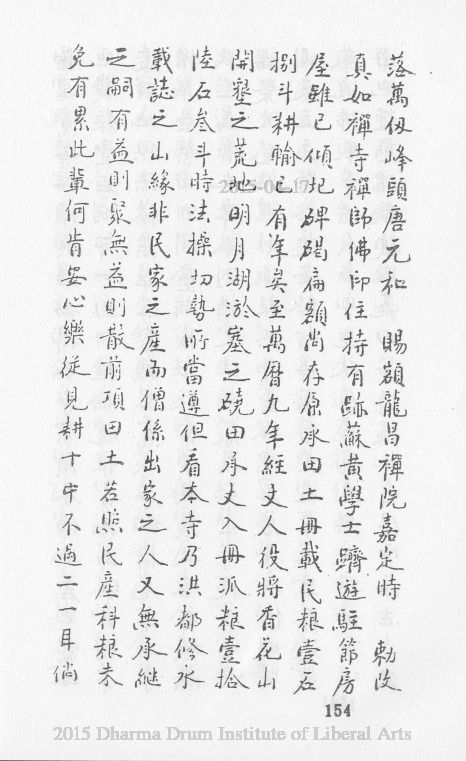 落萬仭峰頭唐元和 賜額龍昌禪院嘉定時 勅改
真如禪寺禪師佛印住持有跡蘇黃學士躋遊駐節房
屋雖已傾圯碑碣扁額尚存原承田土冊載民粮壹石
捌斗耕輸已有年矣至萬曆九年經丈人役將香花山
開墾之荒地明月湖淤塞之磽田承丈入冊派粮壹拾
陸石叁斗時法操切勢所當遵但看本寺乃洪都修水
載誌之山緣非民家之產而僧係出家之人又無承繼
之嗣有益則聚無益則散前項田土若照民產科粮未
免有累此輩何肯安心樂從見耕十中不過二一耳倘
154
2015 Dharma Drum Institute of Liberal Arts